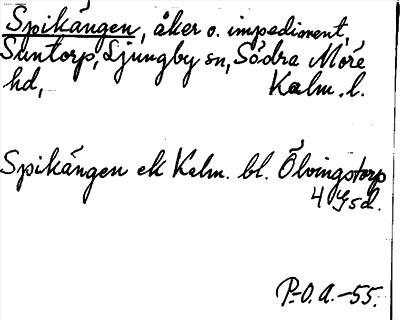 Spikängen, åker o. impediment,
Slintorp, Ljungby sn, Södra Möre
hd, Kalm. l.
Spikängen ek Kalm. bl. Ölvingstorp
4 Gsd.
P.-O. A. -55.